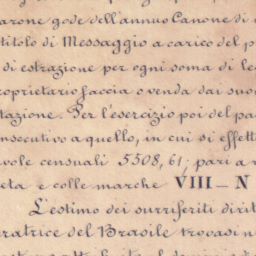 arone gode dell'annuo Canone di
titolo di Messaggio a carico del p
di estrazione per ogni soma di le
roprietario faccia o venda dai suo
tazione. Per l'esercizio poi del pa
nsecutivo a quello, in cui si effett
vole censuali 5508, 61; pari a
eta e colle marche VIII — N
L'estimo dei surriferiti dirit
ratrice del Brasile trovasi n